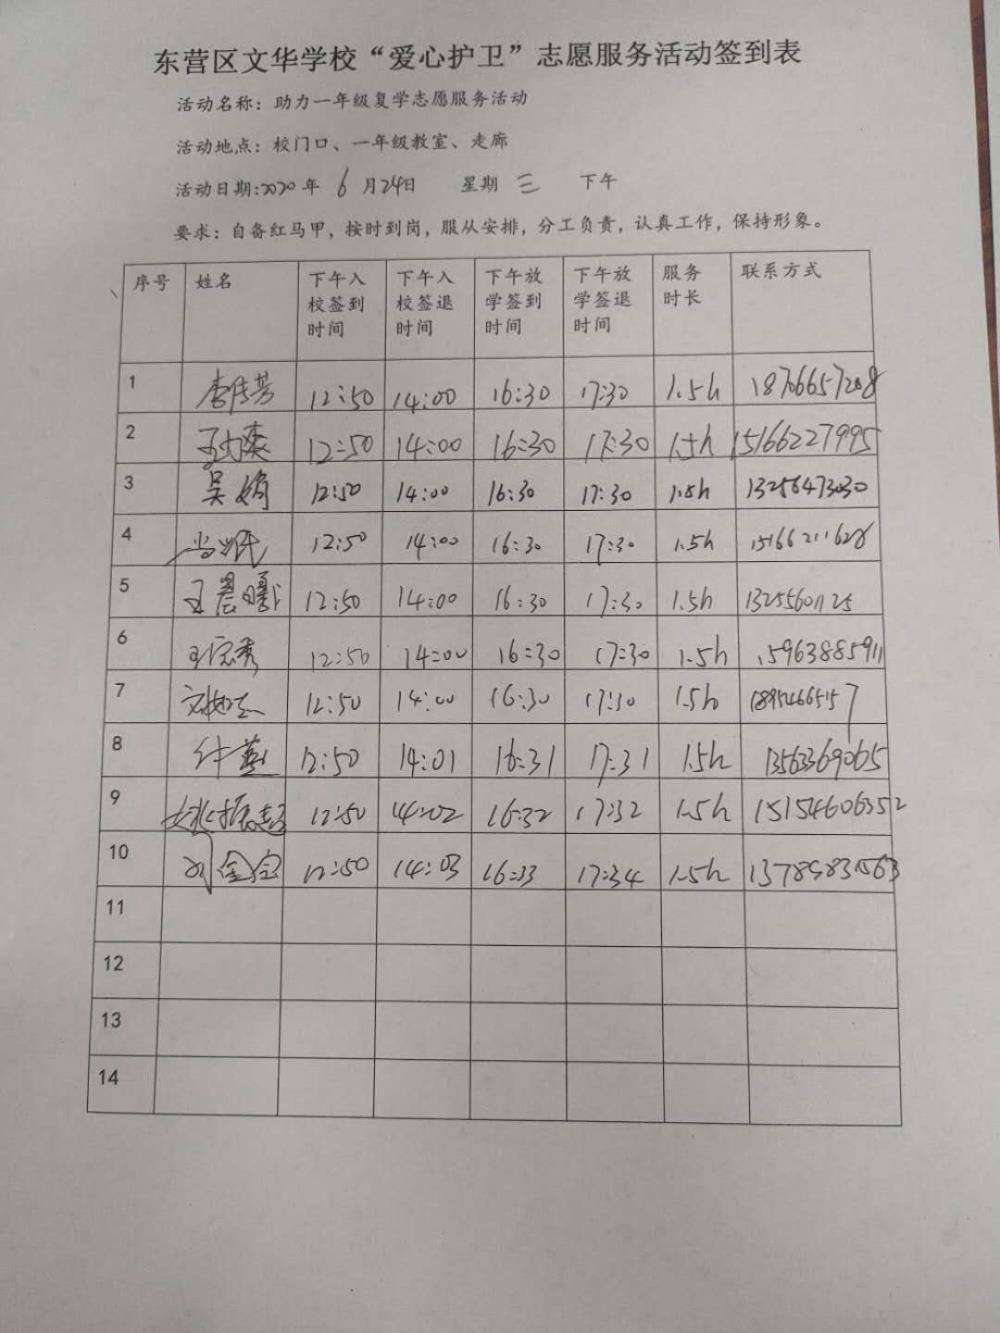 东营区文华学校“爱心护卫”志愿服务活动签到表
活动名称：助力一年级复学志愿服务活动
活动地点：校门口、一年级教室、走廊
活动日期:2020年 6月24日 星期 三 下午
要求：自备红马甲，按时到岗，服从安排，分工负责，认真工作，保持形象。
序号 姓名 下午入校签到时间 下午入校签退时间 下午放学签到时间 下午放学签退时间 服务时长 联系方式
1 李传芳 12:50 14:00 16:30 17:30 1.5h 18766657208
2 12:50 14:00 16:30 17:30 1.5h 15166227995
3 吴娟 12:50 14:00 16:30 17:30 1.5h 13256473030
4 12:50 14:00 16:30 17:30 1.5h 15166211628
5 王晨曦 12:50 14:00 16:30 17:30 1.5h 13255601125
6 12:50 14:00 16:30 17:30 1.5h 15963885911
7 12:50 14:00 16:30 17:30 1.5h 18954665157
8 12:50 14:01 16:31 17:31 1.5h 13563369065
9 姚振超 12:50 14:02 16:32 17:32 1.5h 15154606352
10 刘金宝 12:50 14:03 16:33 17:34 1.5h 13785831563
11
12
13
14